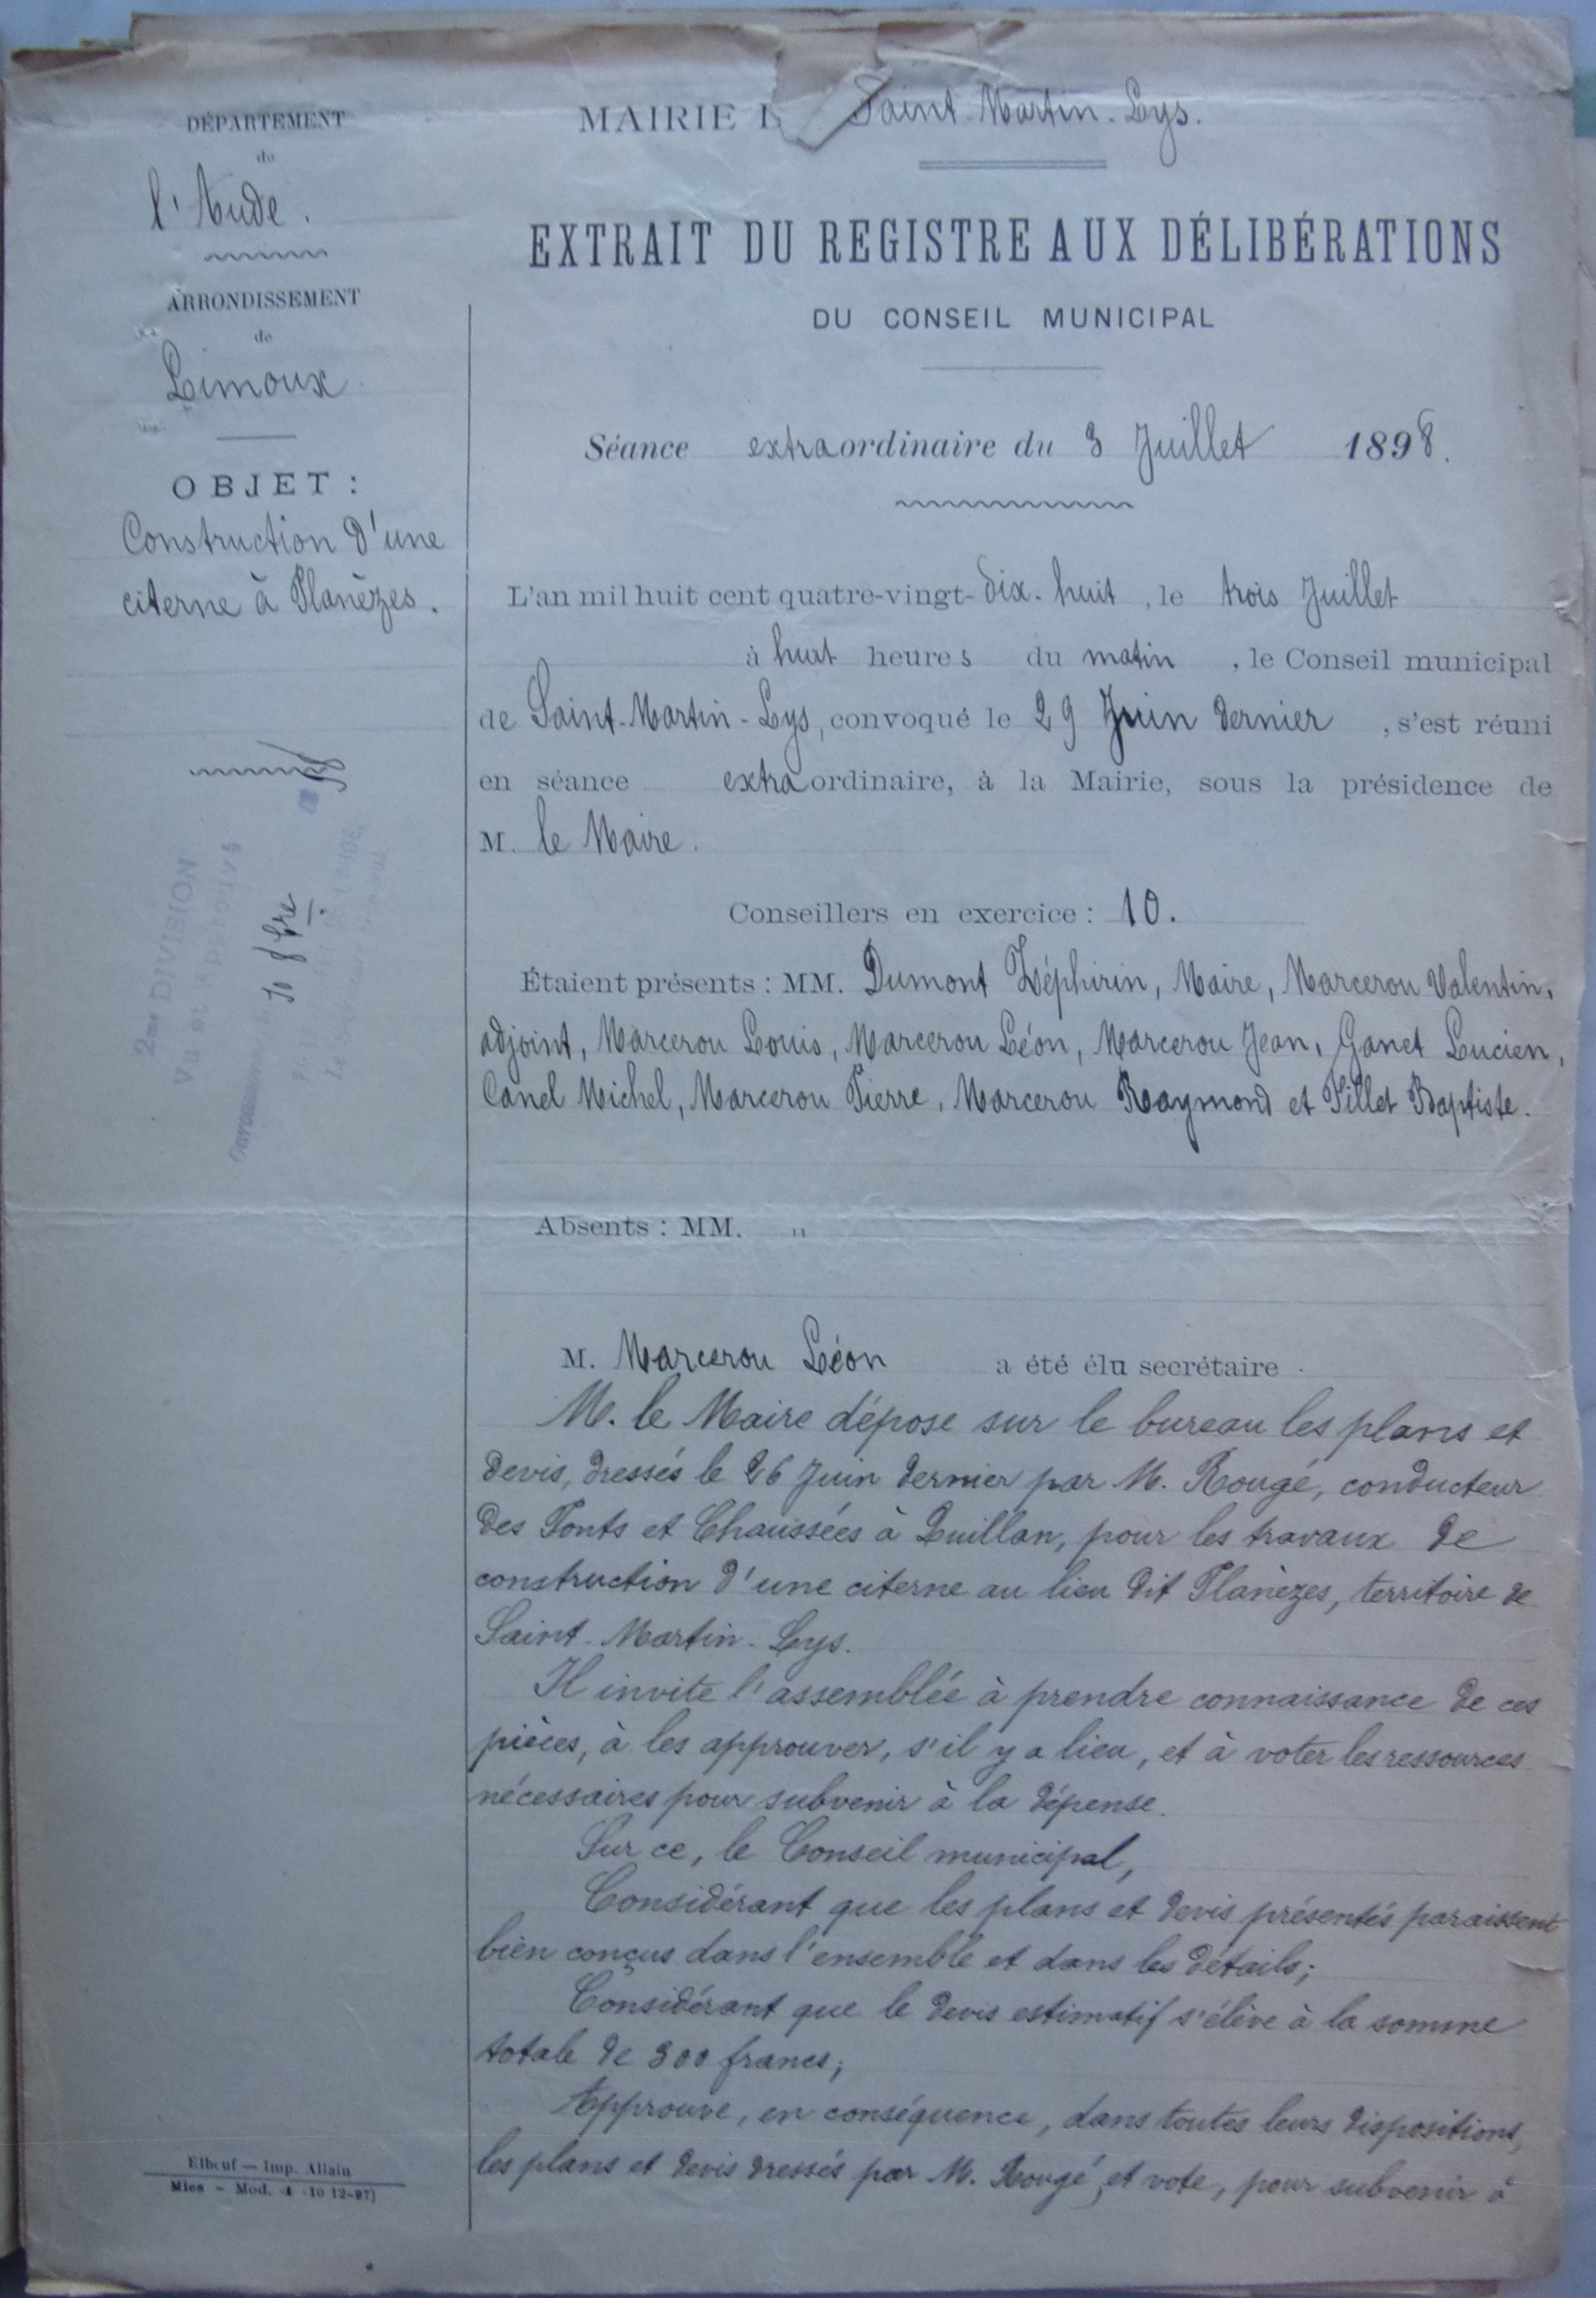 DÉPARTEMENT
de
l'Aude.
ARRONDISSEMENT
de
Limoux
OBJET :
Construction d'une
citerne à Planèzes.
2me DIVISION
Vu et Approuvé
Carcassonne, le 10 8bre
Elbeuf — Imp. Allain
Mies - Mod. 4 (10-12-97)
MAIRIE Saint-Martin-Lys.
EXTRAIT DU REGISTRE AUX DÉLIBÉRATIONS
DU CONSEIL MUNICIPAL
Séance extraordinaire du 3 Juillet 1898.
L'an mil huit cent quatre-vingt-dix-huit, le trois Juillet
à huit heures du matin, le Conseil municipal
de Saint-Martin-Lys, convoqué le 29 Juin dernier, s'est réuni
en séance extraordinaire, à la Mairie, sous la présidence de
M. le Maire.
Conseillers en exercice : 10.
Étaient présents : MM. Dumont Zéphirin, Maire, Marcerou Valentin,
adjoint, Marcerou Louis, Marcerou Léon, Marcerou Jean, Ganet Lucien,
Canel Michel, Marcerou Pierre, Marcerou Raymond et Pillet Baptiste.
Absents : MM. "
M. Marcerou Léon a été élu secrétaire.
M. le Maire dépose sur le bureau les plans et
devis, dressés le 26 Juin dernier par M. Rougé, conducteur
des Ponts et Chaussées à Quillan, pour les travaux de
construction d'une citerne au lieu dit Planèzes, territoire de
Saint-Martin-Lys.
Il invite l'assemblée à prendre connaissance de ces
pièces, à les approuver, s'il y a lieu, et à voter les ressources
nécessaires pour subvenir à la dépense.
Sur ce, le Conseil municipal,
Considérant que les plans et devis présentés paraissent
bien conçus dans l'ensemble et dans les détails;
Considérant que le devis estimatif s'élève à la somme
totale de 300 francs;
Approuve, en conséquence, dans toutes leurs dispositions,
les plans et devis dressés par M. Rougé, et vote, pour subvenir à